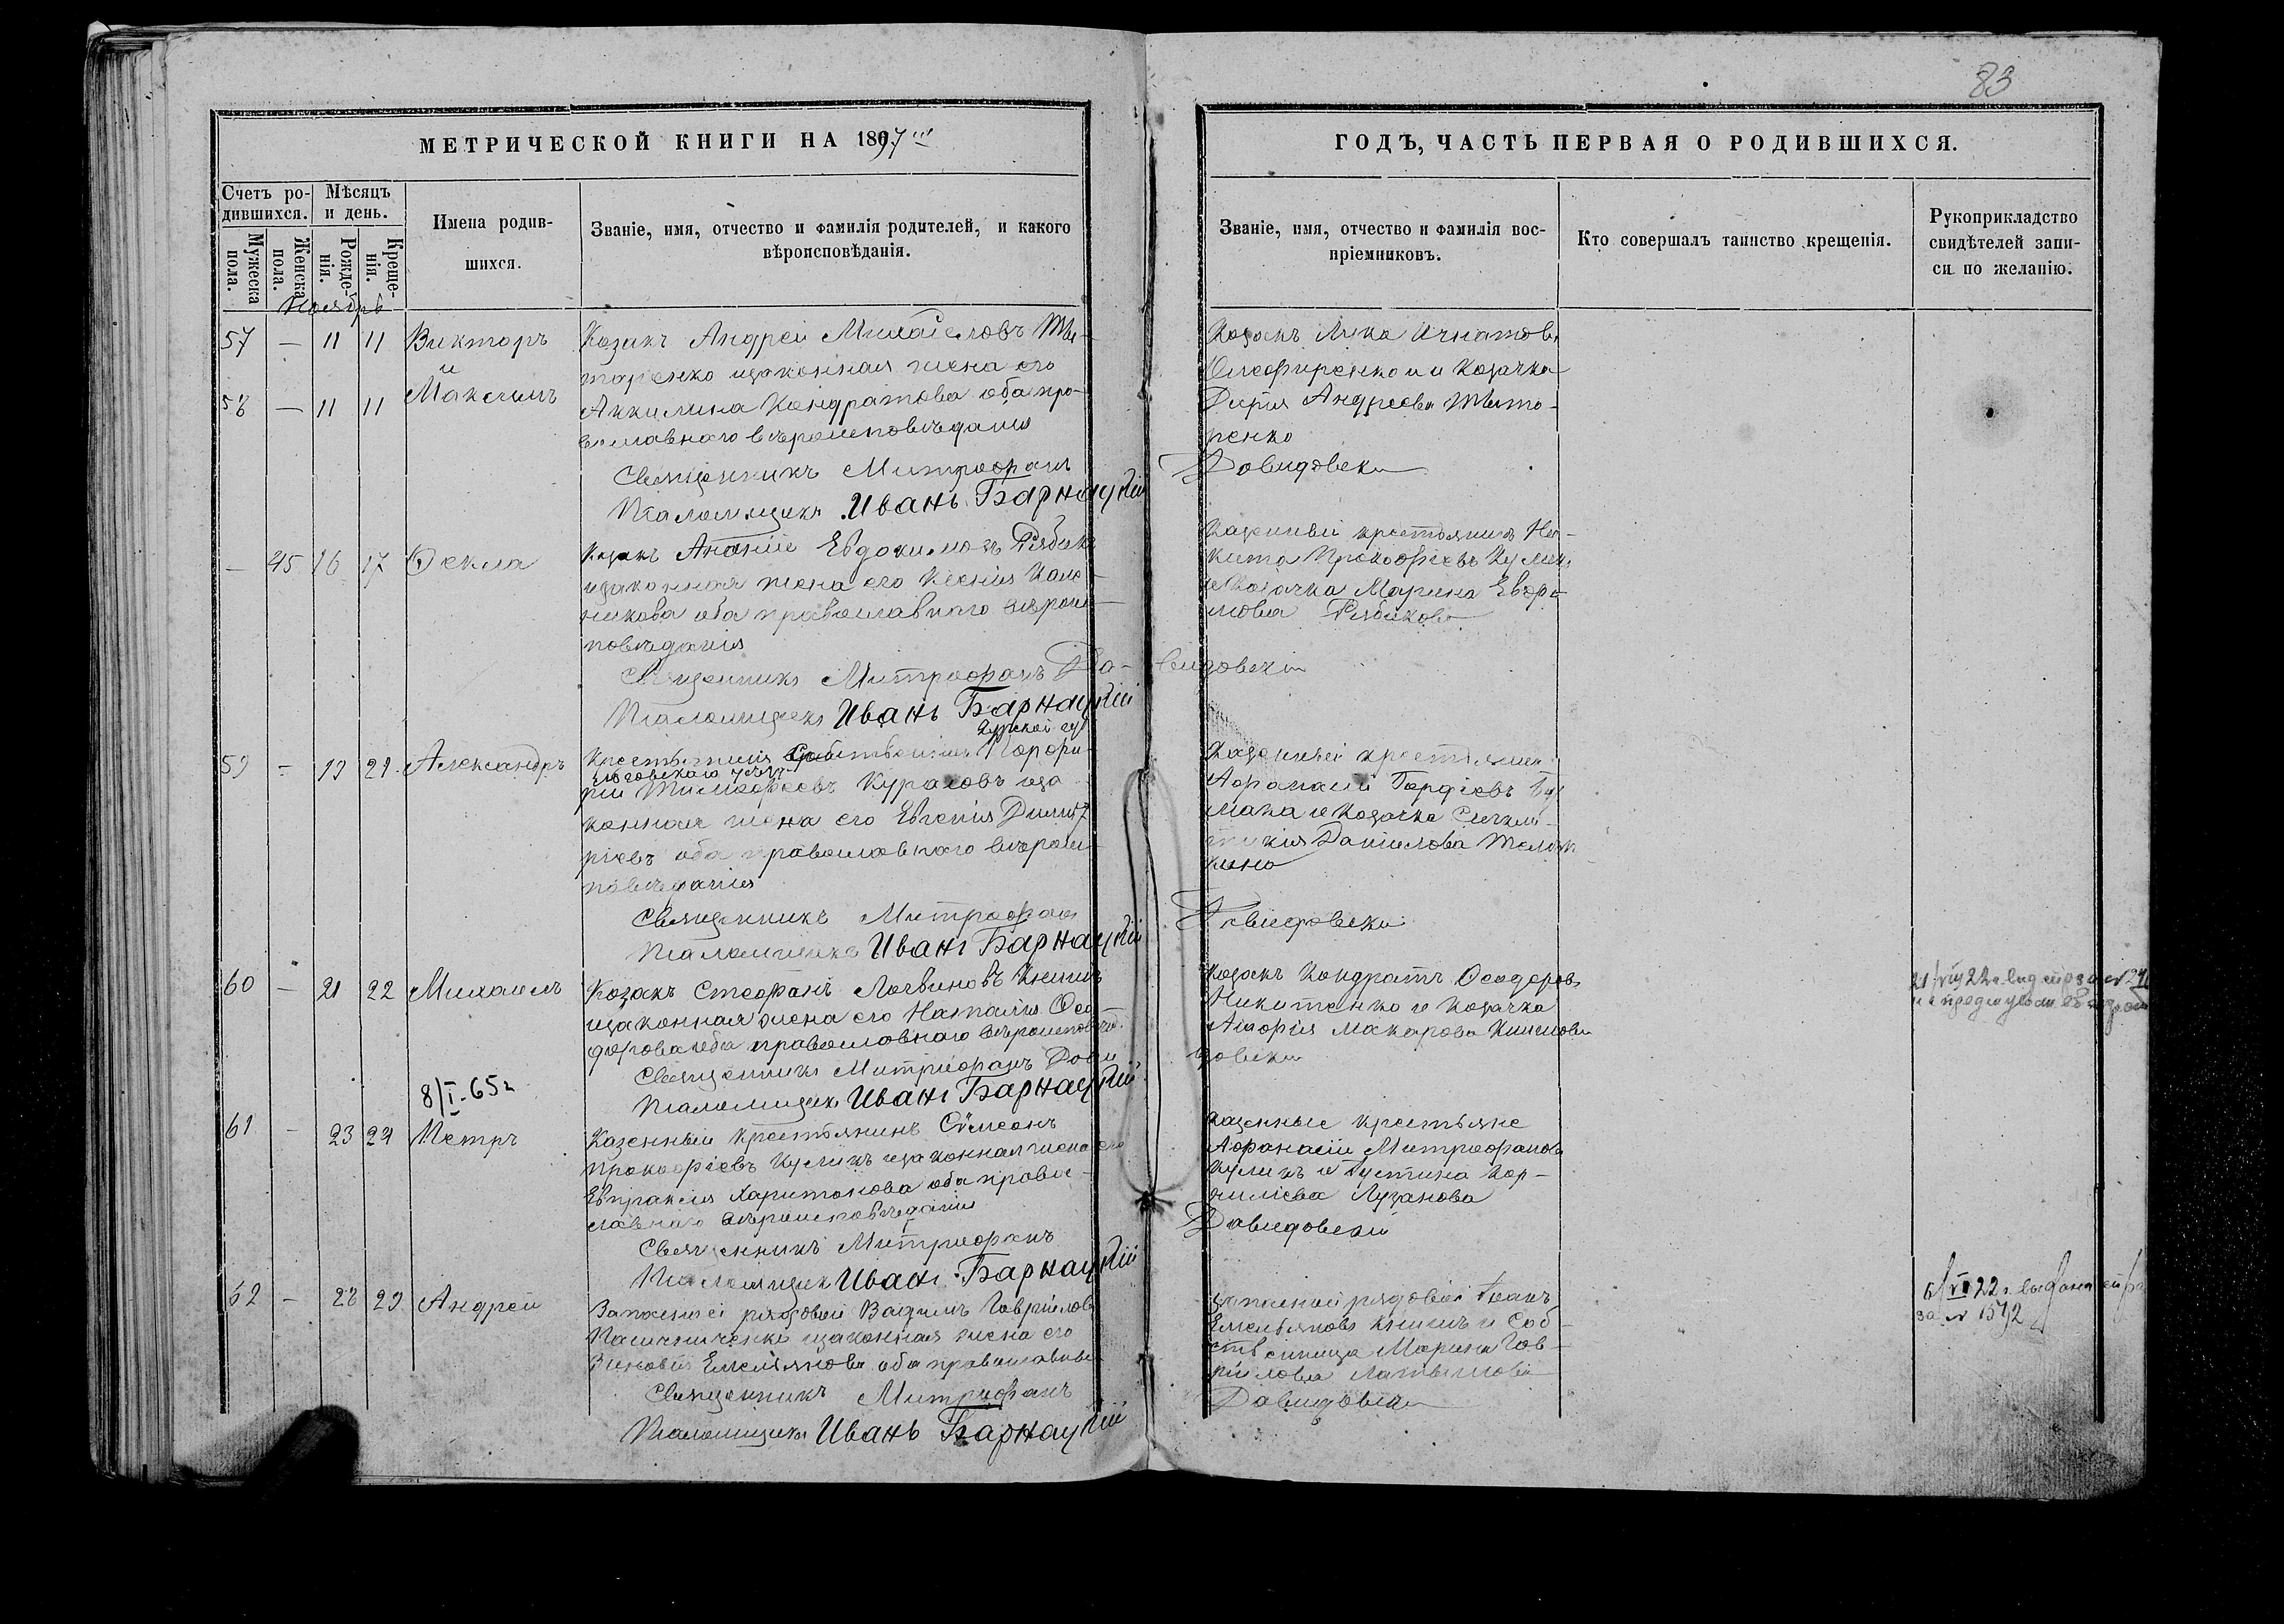 83
МЕТРИЧЕСКОЙ КНИГИ НА 1897
ГОДЪ, ЧАСТЬ ПЕРВАЯ О РОДИВШИХСЯ.
Счетъ ро-
дившихся.
Мѣсяцъ
и день.
Мужеска
пола.
Женска
пола.
Рожде-
нія.
Креще-
нія.
Имена родив-
шихся.
Званіе, имя, отчество и фамилія родителей, и какого
вѣроисповѣданія.
Званіе, имя, отчество и фамилія вос-
пріемниковъ.
Кто совершалъ таинство крещенія.
Рукоприкладство
свидѣтелей запи-
си по желанію.
Ноябрь
57 — 11 11 Викторъ
и
58 — 11 11 Максимъ
Козакъ Андрей Михайловъ Ты-
таренко изаконная жена его
Акилина Кондратова оба пра-
вославного вѣроисповѣданія
Козакъ Лука Игнатовъ
Козачка
Дарія Андреева Тыта-
ренко
Священникъ Митрофанъ Давидовскій
Псаломщикъ Иванъ Барнацкій
— 45 16 17 Фекла
Козакъ Ананій Евдокимовъ Рябика
изаконная жена его Ксенія
оба православного вѣроис-
повѣданія
Казенный крестьянинъ Ни-
кита Прокофіевъ Куликъ
и Козачка Марина Евдо-
мова Рябикова
Священникъ Митрофанъ Да-видовскій
Псаломщикъ Иванъ Барнацкій
59 — 19 21 Александръ
Курской губ
Крестьянинъ Порфи-
Льговского уѣзда
рій Тимофеевъ Курасовъ иза
конная жена его Евгенія Димит
ріевъ оба православного вѣроис
повѣданія
Казенный крестьянинъ
Афанасій Гордіевъ
и Козачка
Даніилова
Священникъ Митрофанъ Давидовскій
Псаломщикъ Иванъ Барнацкій
60 — 21 22 Михаилъ
Козакъ Стефанъ Логвиновъ Книшъ
изаконная жена его Наталія Фео
дорова оба православного вѣроисповѣд.
Козакъ Кондратъ Феодоровъ
Никитенко и Козачка
Макарова Книшова
21/VIII 22 г.
Священникъ Митрофанъ Дави довскій
Псаломщикъ Иванъ Барнацкій
8/I-65г
61 — 23 24 Петръ
Казенный Крестьянинъ Сѵмеонъ
Прокофіевъ Куликъ изаконная жена его
Евпраксія Харитонова оба правос-
лавного вѣроисповѣданія
Казенные крестьяне
Афанасій Митрофановъ
Куликъ и Іустина Кор-
нилієва Лузанова
Священникъ Митрофанъ Давидовскій
Псаломщикъ Иванъ Барнацкій
62 — 28 29 Андрей
Запасный рядовой Вадимъ Гавріиловъ
изаконная жена его
Зиновія Емеліянова оба православные
запасной рядовой Іоанъ
Емельяновъ Книшъ и Соб-
ственница Марина Гав-
ріилова
6/VI 22 г. выдан
за № 1592
Священникъ Митрофанъ Давидовскій
Псаломщикъ Иванъ Барнацкій